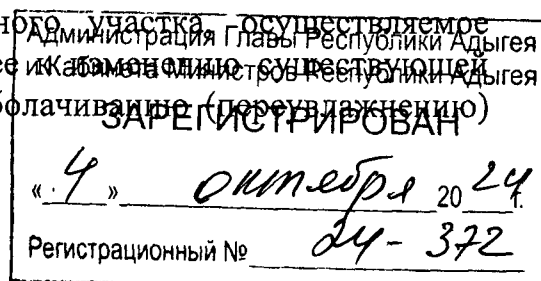 ного участка, осуществляемое
Администрация Главы Республики Адыгея
ее к изменению существующей
и Кабинета Министров Республики Адыгея
болачиванию (переувлажнению)
ЗАРЕГИСТРИРОВАН
«4» октября 2024 г.
Регистрационный № 24-372